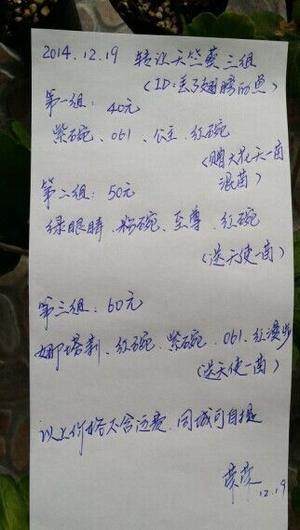 2014.12.19 转让天竺葵三组
(ID:丢了翅膀的鱼)
第一组: 40元
紫碗、061、公主、红碗
(赠大花天一苗
混苗)
第二组: 50元
绿眼睛、粉碗、至尊、红碗
(送天使一苗)
第三组: 60元
娜塔莉、红碗、紫碗、061、红漫步
(送天使一苗)
以上价格不含运费,同城可自提
12.19